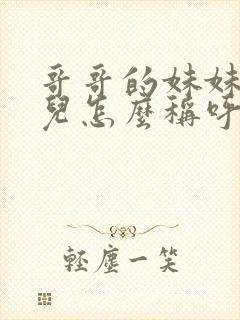 哥哥的妹妹
兒怎麼稱呼
輕塵一笑